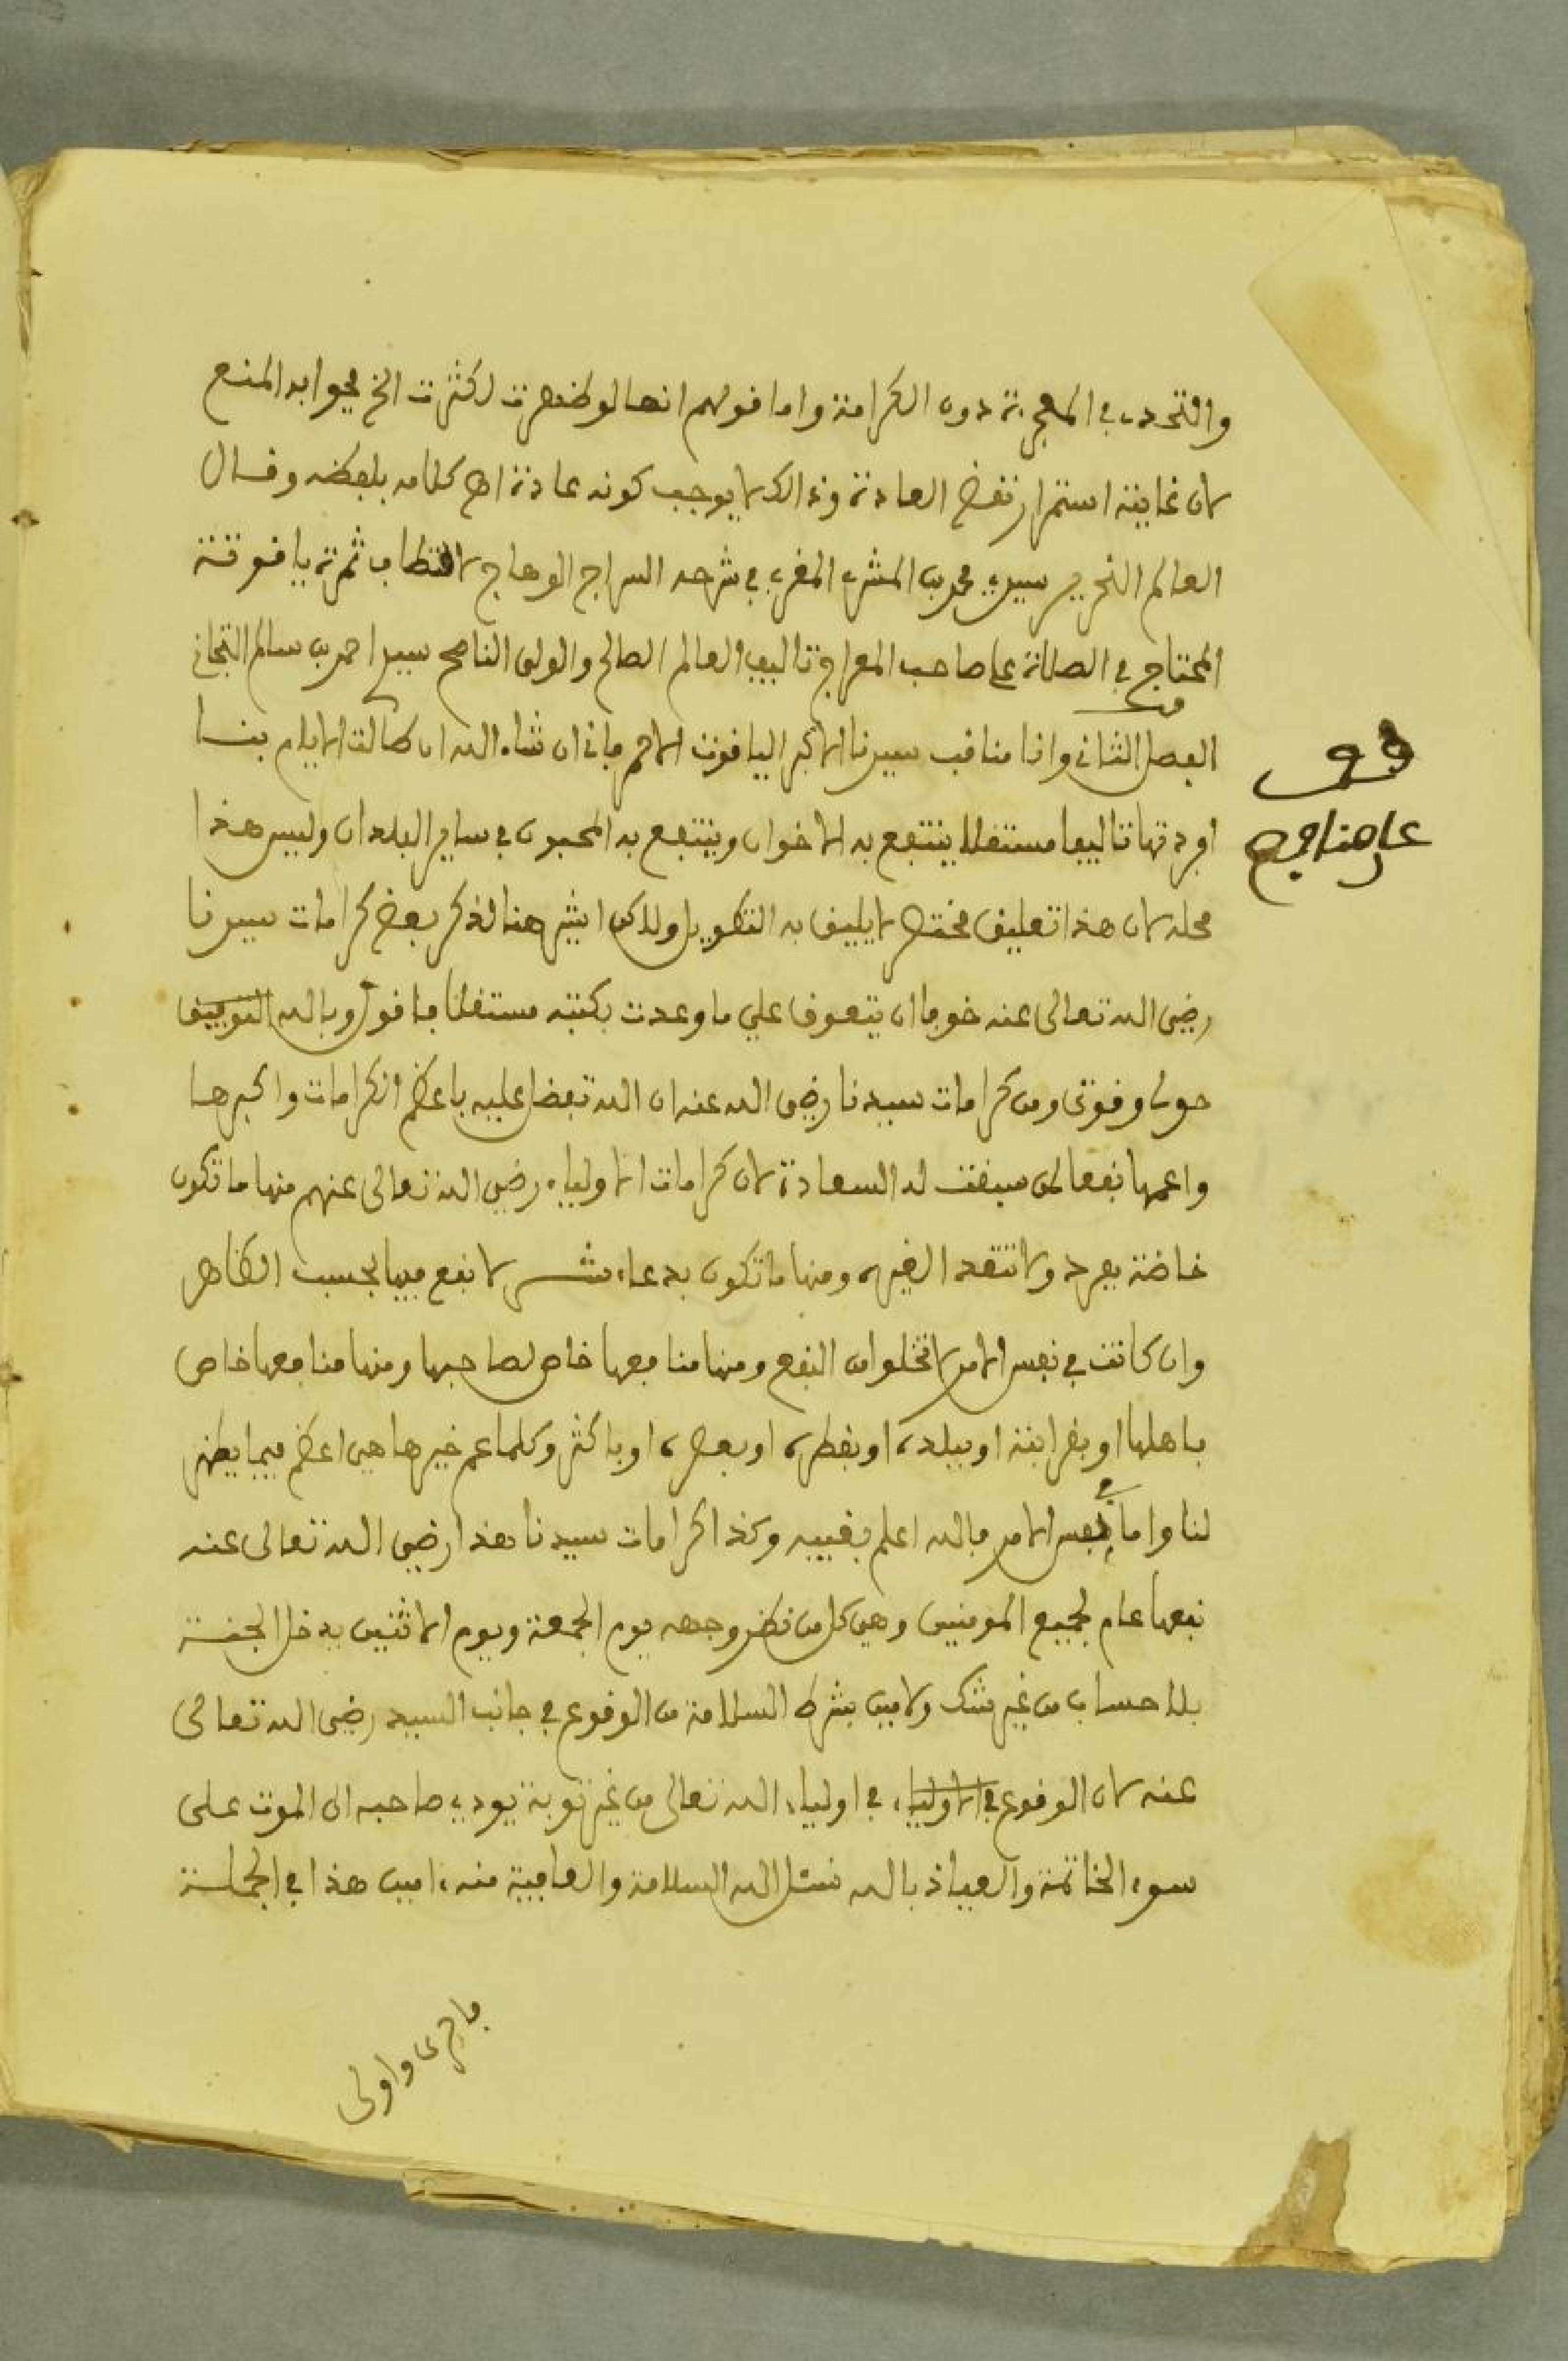 والتحدي في المعجزة دون الكرامة واما قولهم انها لو ظهرت لكثرت الخ فجوابه المنع
لان غايته استمرار نقض العادة وذالك لا يوجب كونه عادة اه كلامه بلفظه وقال
العالم النحرير سيدي محمد بن المشري المغربي في شرحه السراج الوهاج لاقتطاف ثمرة ياقوتة
المحتاج في الصلاة على صاحب المعراج تاليف العالم الصالح والولي الناصح سيد احمد بن سالم التجاني
الفصل الثاني واما مناقب سيدنا الاكبر الياقوت الاحمر فاني ان شاء الله ان طالت الايام بنا
اوردتها تاليفا مستقلا ينتفع به الاخوان وينتفع به المحبون في ساير البلدان وليس هذا
محله لان هذا تعليق مختصر لا يليق به التطويل ولاكن اشير هنا لذكر بعض كرامات سيدنا
رضي الله تعالى عنه خوفا ان يتعوق علي ما وعدت بكتبه مستقلا فاقول وبالله التوفيق
حولي وقوتي ومن كرامات سيدنا رضي الله عنه ان الله تفضل عليه باعظم الكرامات واكبرها
واعمها نفعا لمن سبقت له السعادة لان كرامات الاولياء رضي الله تعالى عنهم منها ما تكون
خاصة بفرد ولا تتعد الغيره ومنها ما تكون بدعاء بشر لا نفع فيها بحسب الظاهر
وان كانت في نفس الامر لا تخلوا من النفع ومنها منافعها خاص لصاحبها ومنها منافعها خاص
باهلها او بقرابته او ببلده او بقطره او بعصره او باكثر وكلما عم خيرها هي اعظم فيما يظهر
لنا واما في نفس الامر فالله اعلم بغيبه وكذا كرامات سيدنا هذا رضي الله تعالى عنه
نفعها عام لجميع المومنين وهي كل من نظر وجهه يوم الجمعة ويوم الاثنين يدخل الجنة
بلا حساب من غير شك ولا مين بشرط السلامة من الوقوع في جانب السيد رضي الله تعالى
عنه لان الوقوع في الاولياء في اولياء الله تعالى من غير توبة يودي صاحبه الى الموت على
سوء الخاتمة والعياذ بالله نسئل الله السلامة والعافية منه ءامين هذا في الجملة
قف
على هنا
فاحرى واولى